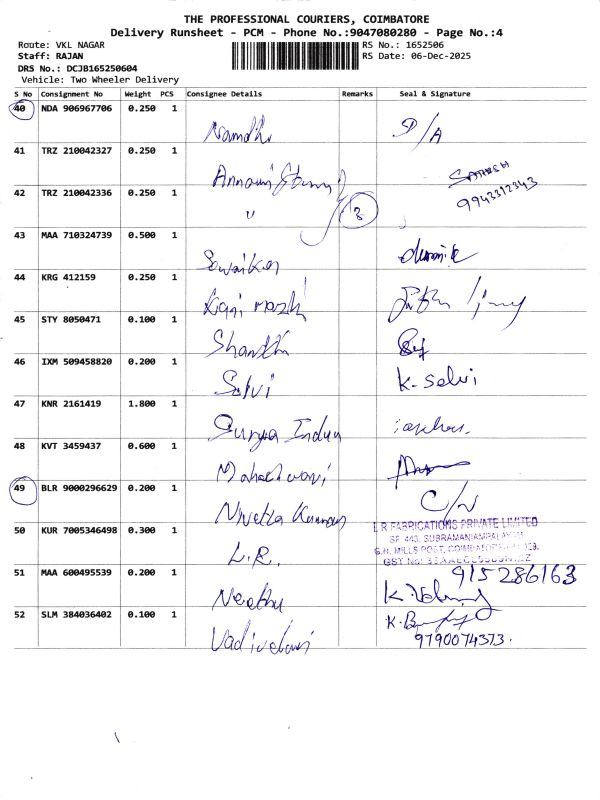 THE PROFESSIONAL COURIERS, COIMBATORE
Delivery Runsheet - PCM - Phone No.:9047080280 - Page No.:4
Route: VKL NAGAR RS No.: 1652506
Staff: RAJAN RS Date: 06-Dec-2025
DRS No.: DCJB165250604
Vehicle: Two Wheeler Delivery
S No Consignment No Weight PCS Consignee Details Remarks Seal & Signature
40 NDA 906967706 0.250 1
Namdhi D/A
41 TRZ 210042327 0.250 1
SATHISH
42 TRZ 210042336 0.250 1
" 3 9943312343
43 MAA 710324739 0.500 1
44 KRG 412159 0.250 1
45 STY 8050471 0.100 1
Shanthi
46 IXM 509458820 0.200 1
Selvi K- Selvi
47 KNR 2161419 1.800 1
Surya Indun
48 KVT 3459437 0.600 1
Maheshwari
49 BLR 9000296629 0.200 1
C/N
50 KUR 7005346498 0.300 1
L.R. L R FABRICATIONS PRIVATE LIMITED
SF 443, SUBRAMANIAMPALAYAM
S.N. MILLS POST, COIMBATORE
GST No:
51 MAA 600495539 0.200 1
915286163
Neethu
52 SLM 384036402 0.100 1
Vadivelavi 9790074373.